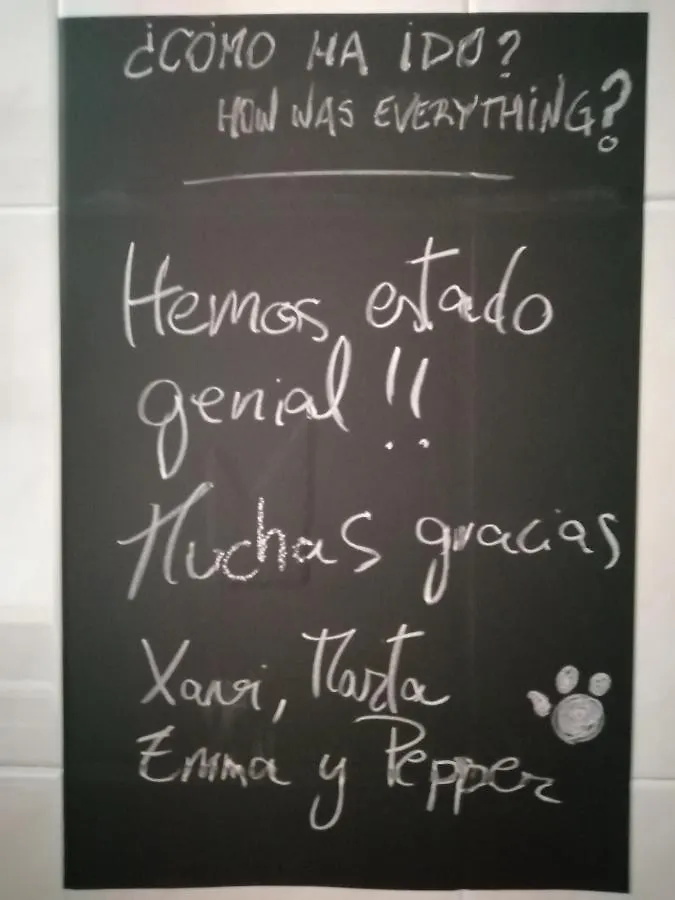 ¿CÓMO HA IDO?
HOW WAS EVERYTHING?
Hemos estado
genial!!
Muchas gracias
Xavi, Marta
Emma y Pepper